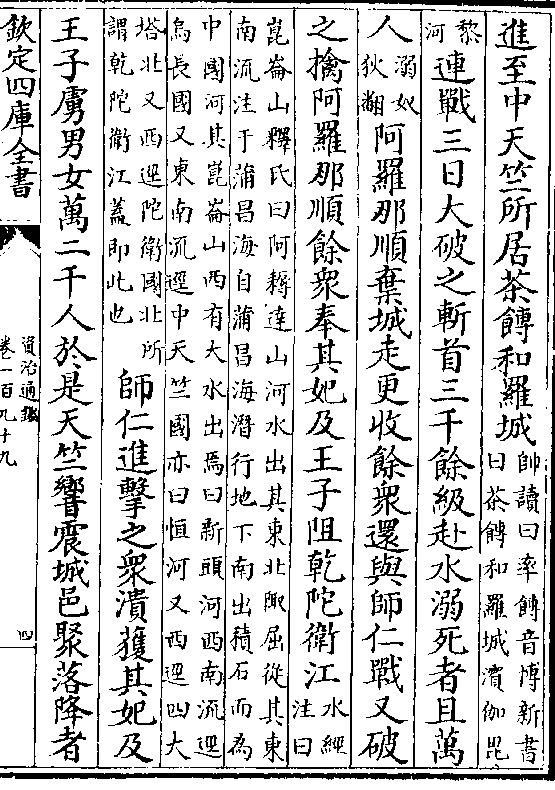 進至中天竺所居茶餺和羅城帥讀曰率餺音博新書
曰茶餺和羅城濱伽毘
黎
河
連戰三日大破之斬首三千餘級赴水溺死者且萬
人溺奴
狄翻
阿羅那順棄城走更收餘衆還與師仁戰又破
之擒阿羅那順餘衆奉其妃及王子阻乾陀衛江水經
注曰
崑崙山釋氏曰阿耨達山河水出其東北陬屈從其東
南流注于蒲昌海自蒲昌海潛行地下南出積石而為
中國河其崑崙山西有大水出焉曰新頭河西南流逕
烏長國又東南流逕中天竺國亦曰恒河又西逕四大
塔北又西逕陀衛國北所
謂乾陀衛江蓋即此也
師仁進擊之衆潰獲其妃及
王子虜男女萬二千人於是天竺響震城邑聚落降者
欽定四庫全書
資治通鑑
卷一百九十九
四